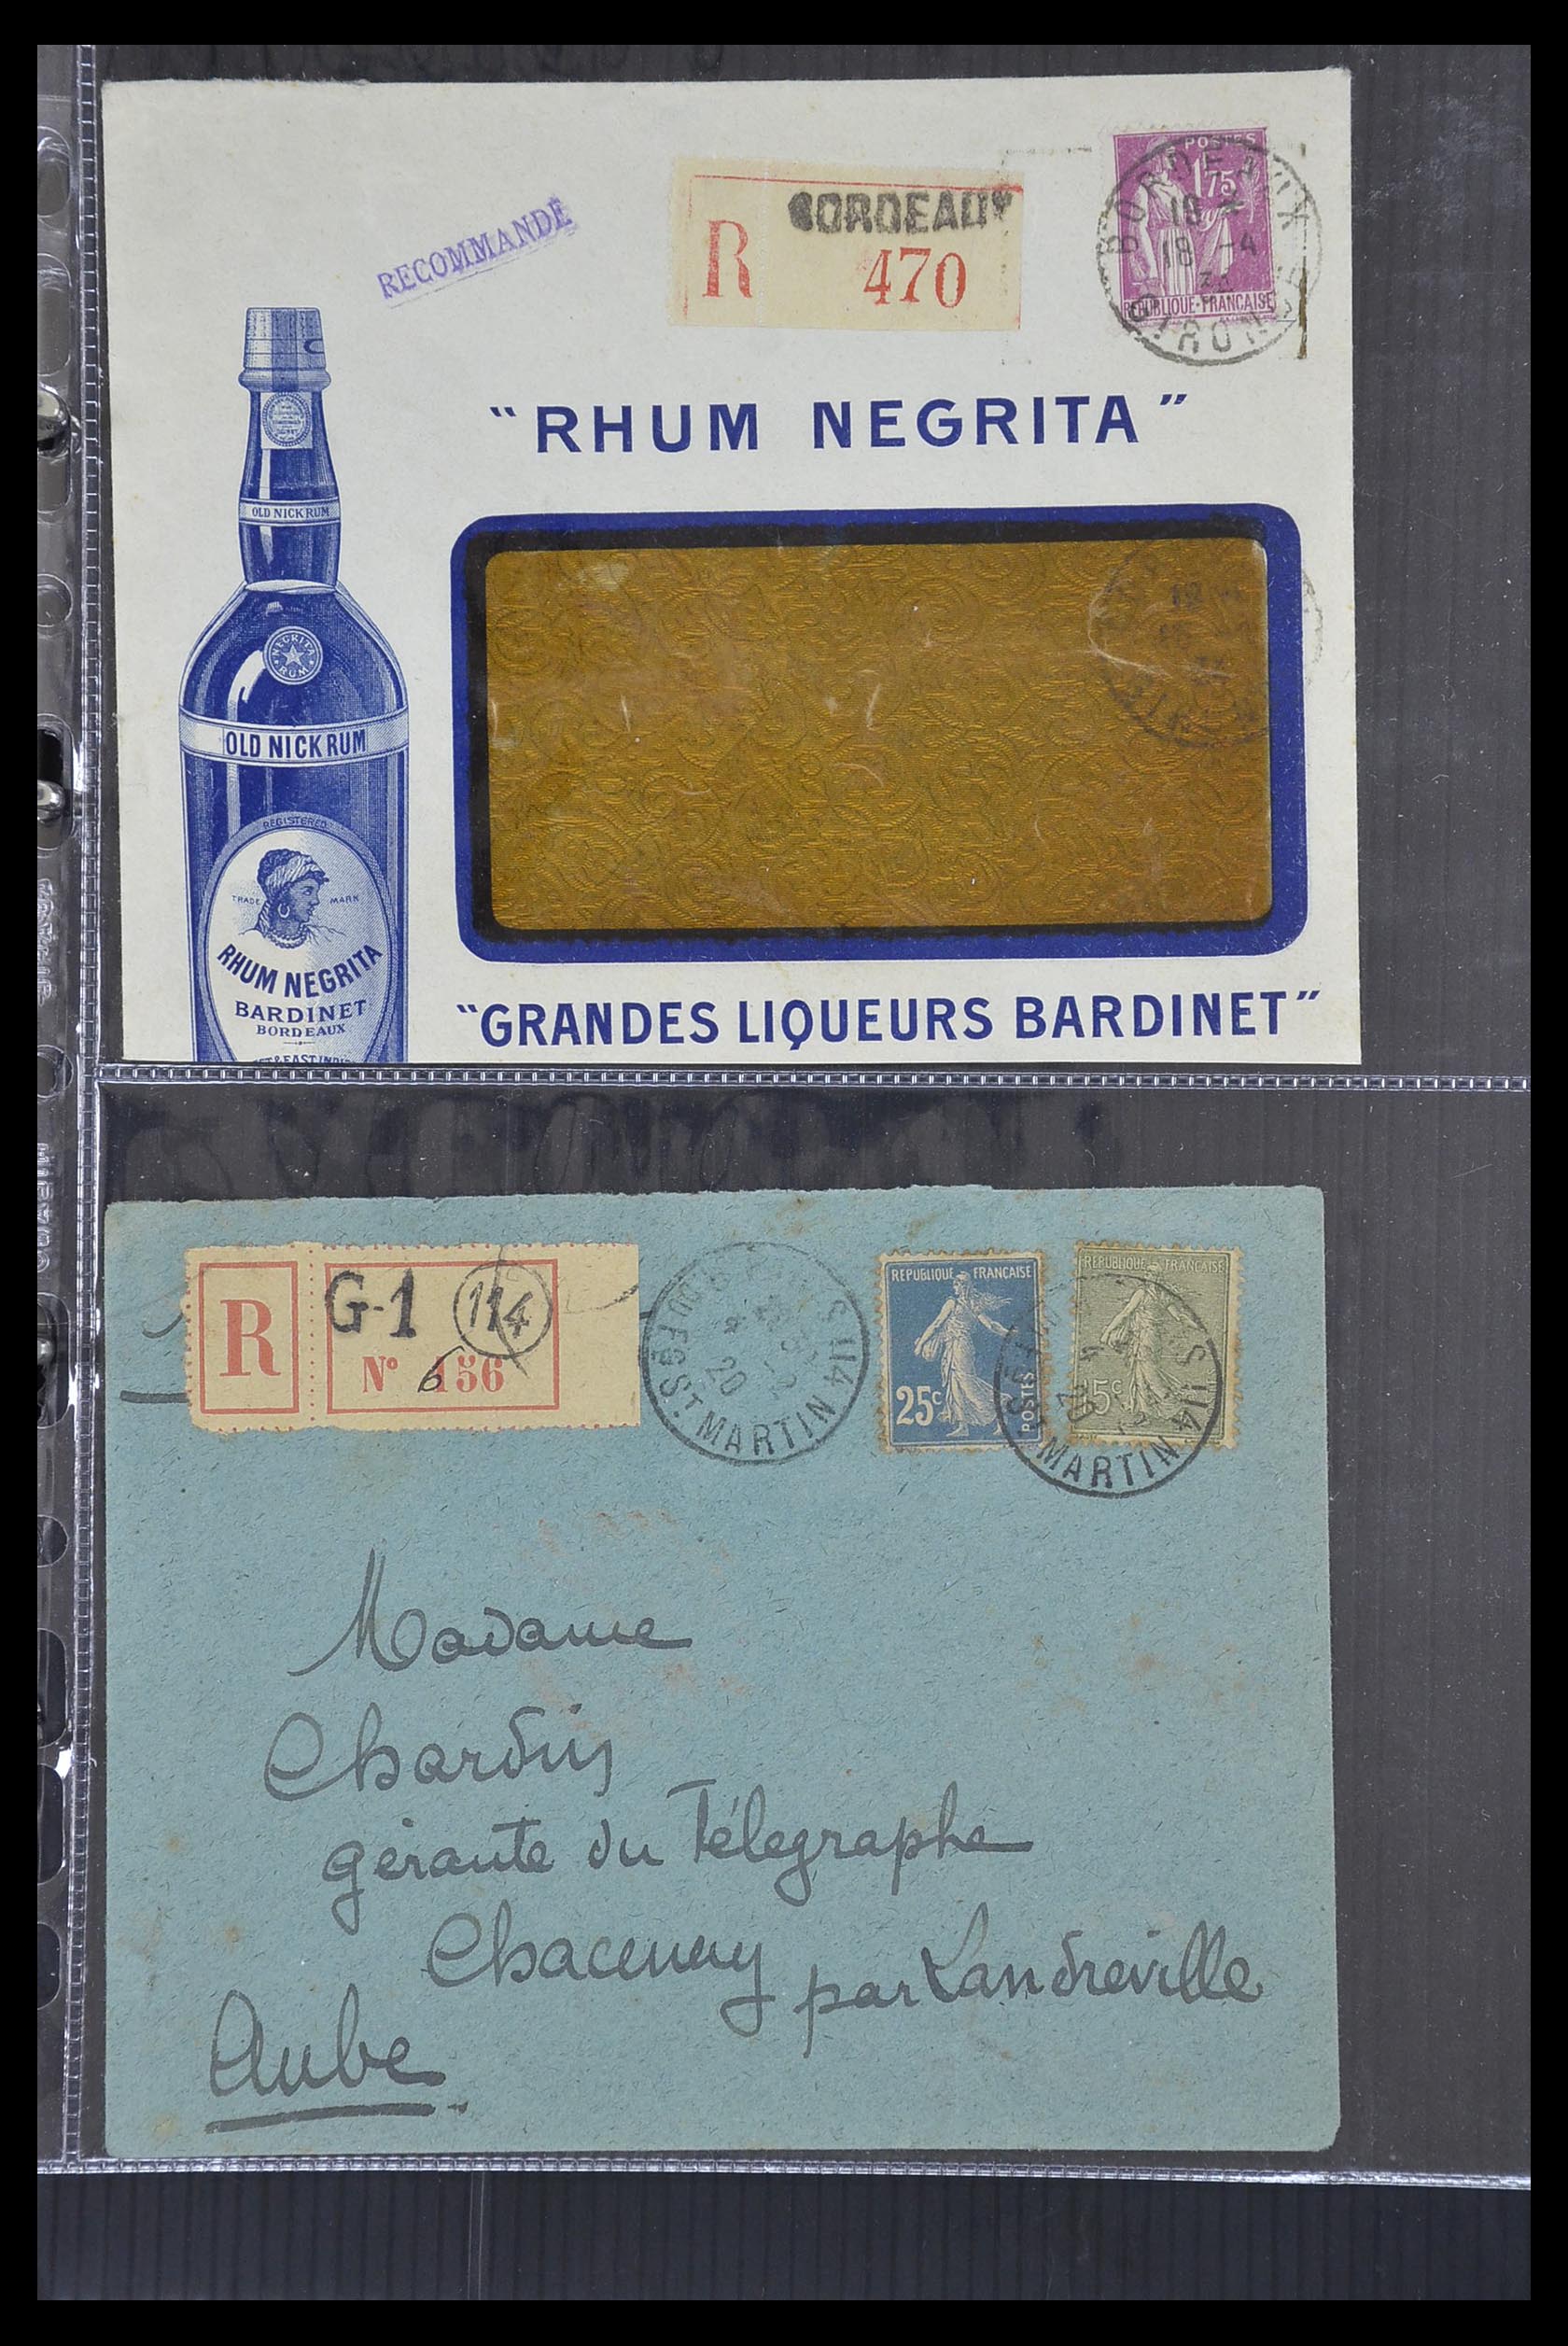 RECOMMANDÉ
BORDEAUX
R 470
POSTES
1F75
REPUBLIQUE-FRANÇAISE
BORDEAUX
18 -4
GIRONDE
"RHUM NEGRITA"
OLD NICK RUM
NEGRITA
RUM
OLD NICK RUM
REGISTERED
TRADE MARK
RHUM NEGRITA
BARDINET
BORDEAUX
"GRANDES LIQUEURS BARDINET"
R
G-1 114
Nº 6 156
20
ST MARTIN
REPUBLIQUE FRANÇAISE
25c
POSTES
REPUBLIQUE FRANÇAISE
15c
20
ST MARTIN
Madame
Chardin
gérante du Télégraphe
Chacenay par Landreville
Aube